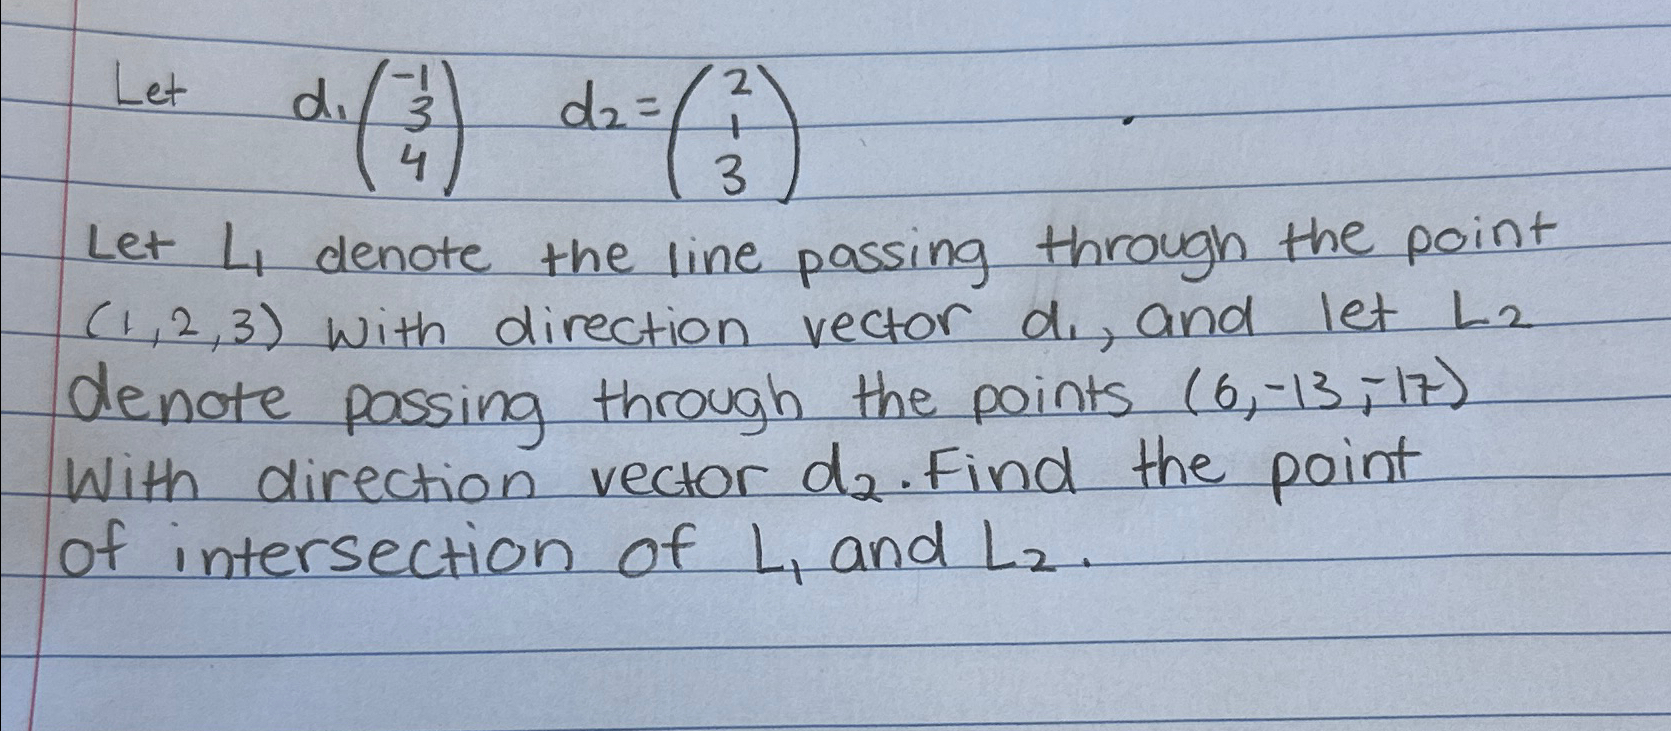 Let d₁ (-1 3 4) d₂ = (2 1 3)
Let L₁ denote the line passing through the point
(1,2,3) with direction vector d₁, and let L₂
denote passing through the points (6,-13,-17)
With direction vector d₂. Find the point
of intersection of L₁ and L₂.